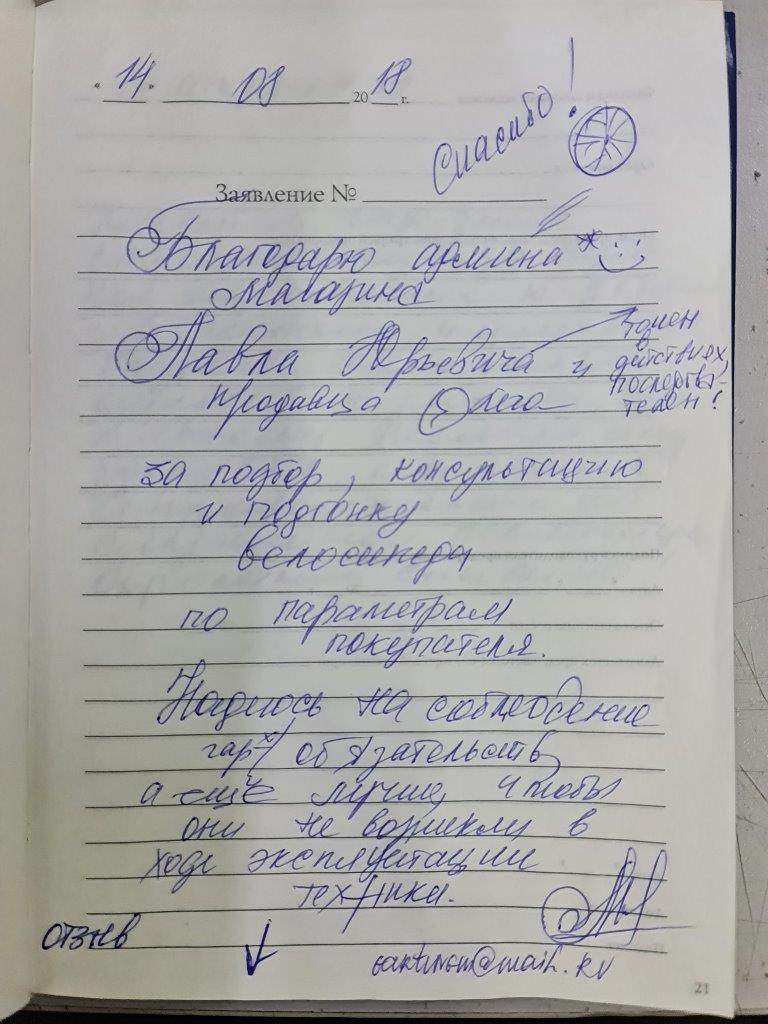 « 14 » 08 20 18 г.
Спасибо!
Заявление №
Благодарю админа*
магазина
Павла Юрьевича и
точен
в
действиях,
последова-
телен!
продавца Олега
за подбор, консультацию
и подгонку
велосипеда
по параметрам
покупателя.
Надеюсь на соблюдение
гар-х обязательств,
а ещё лучше, чтобы
они не возникли в
ходе эксплуатации
техники.
отзыв
21